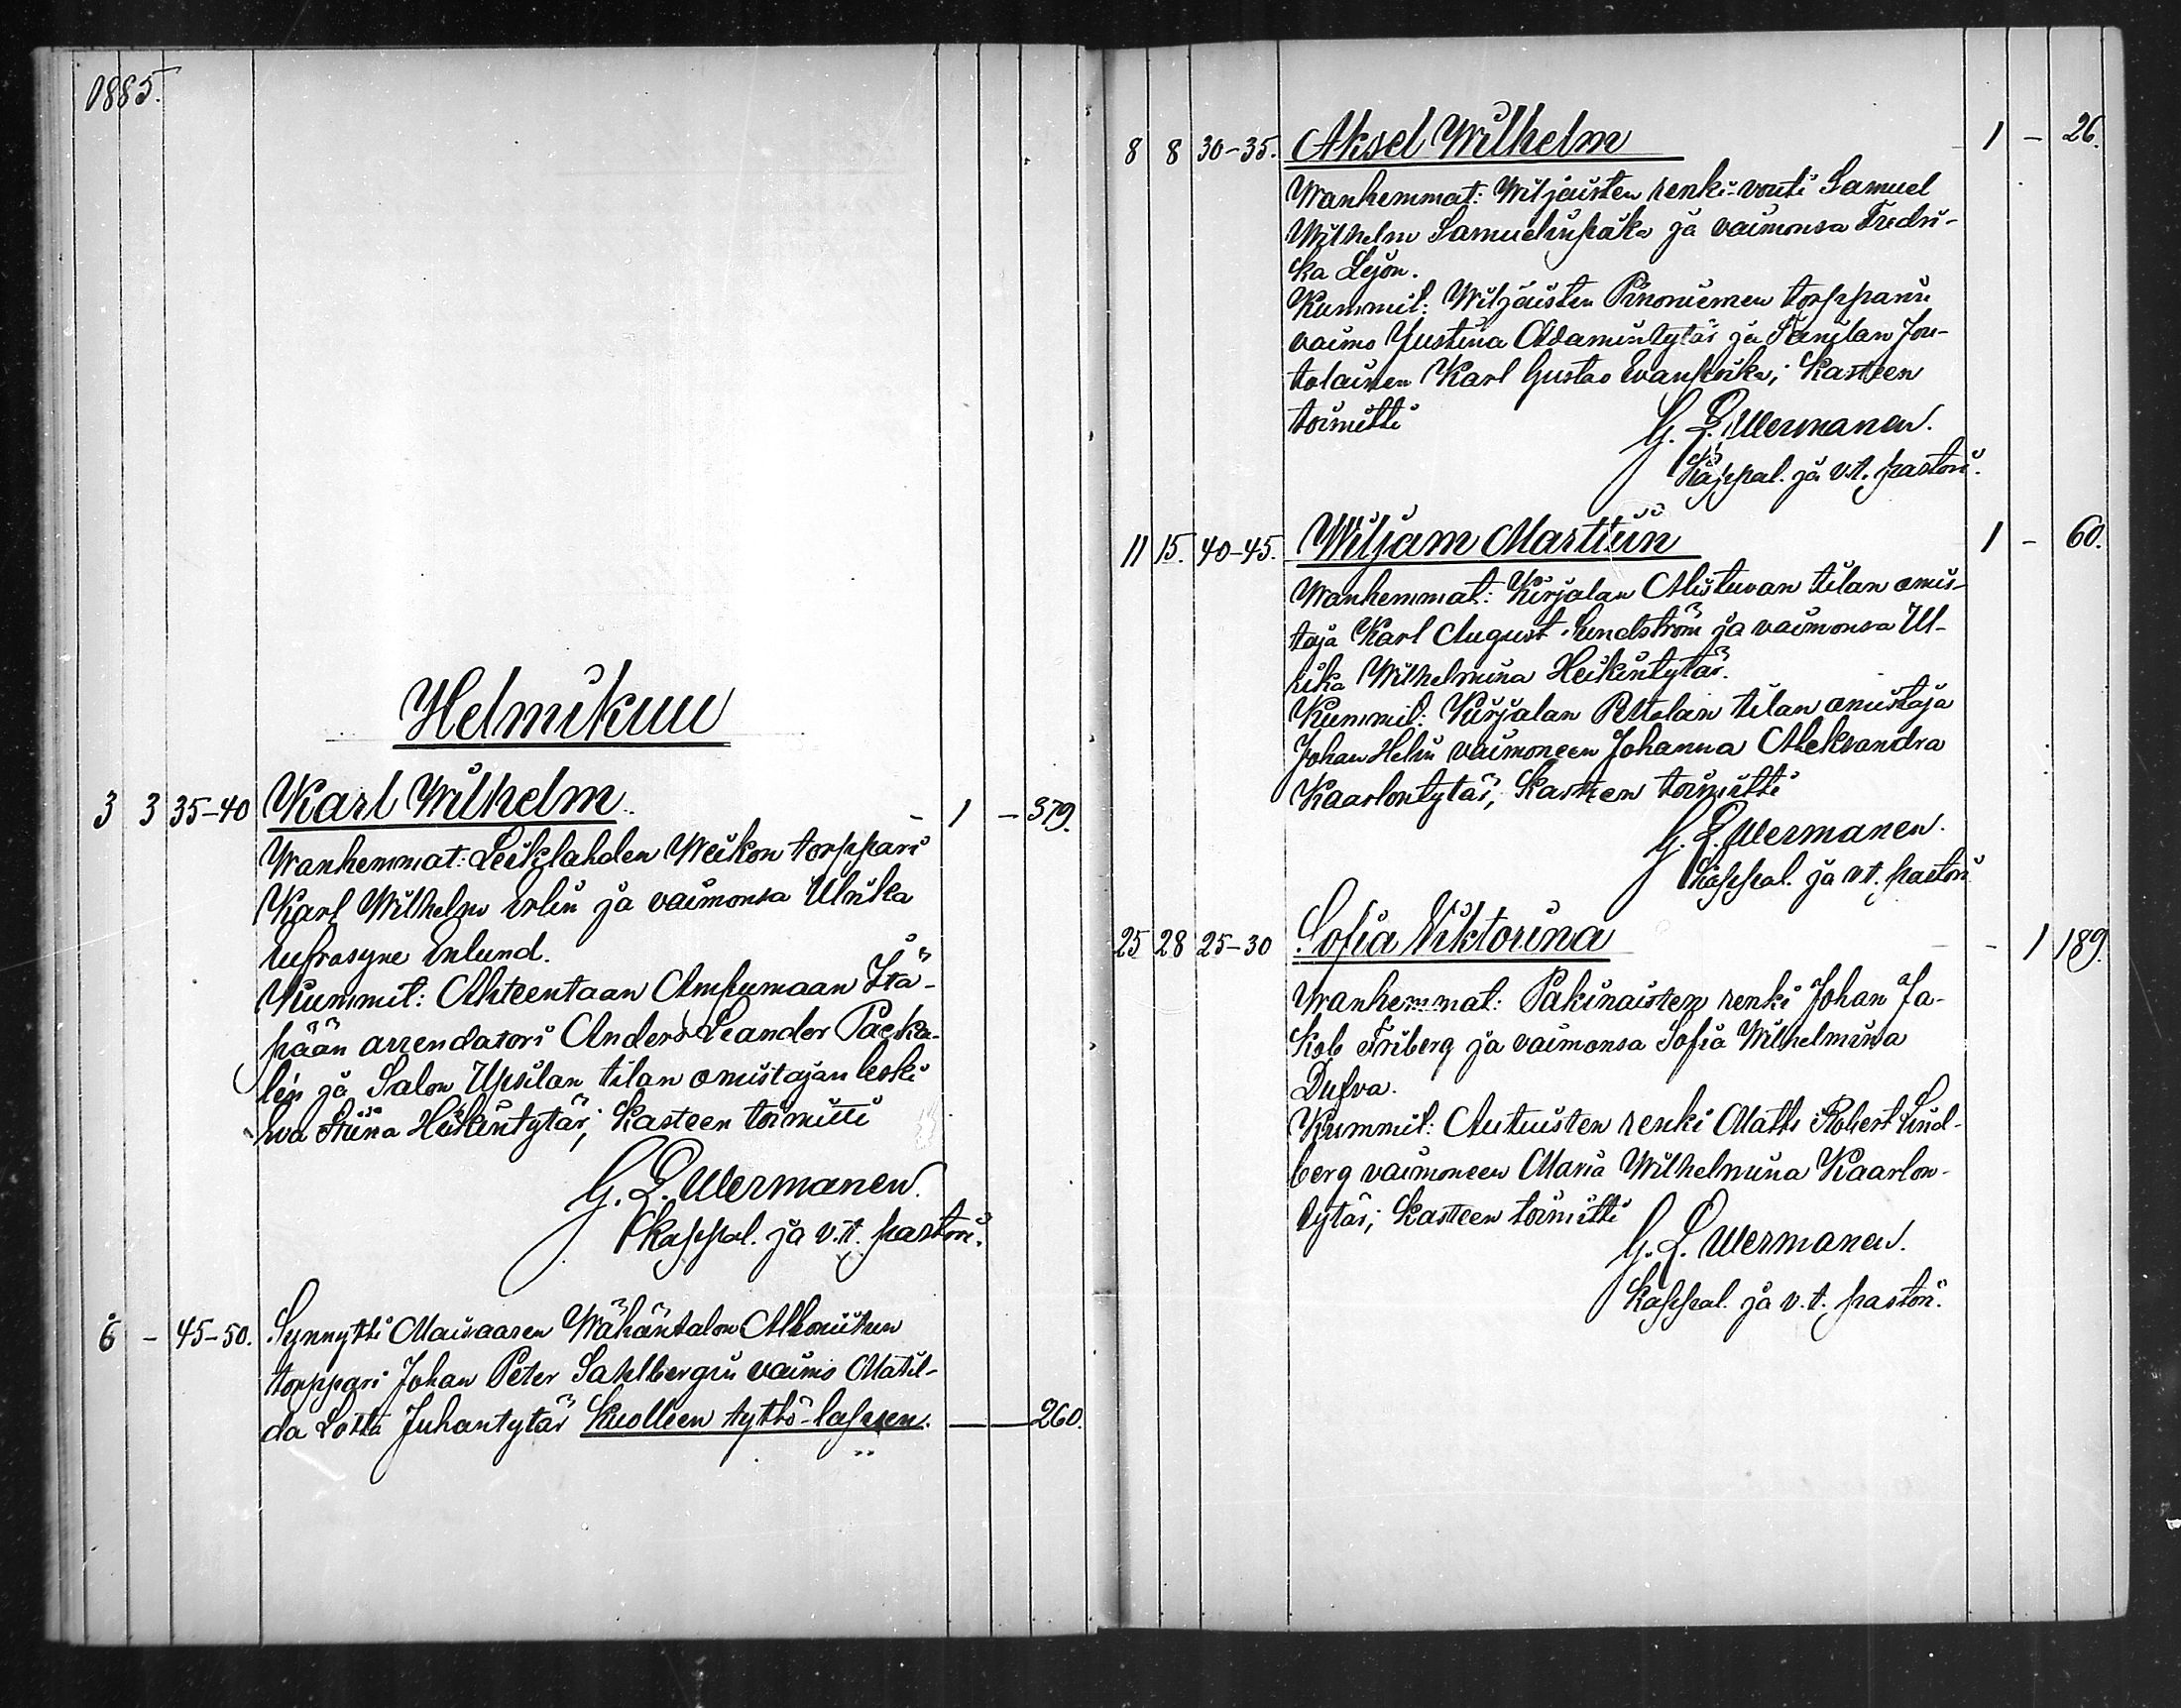 1885.
Helmikuu
3 3 35-40 Karl Wilhelm. 1 - 379.
Wanhemmat: Leiklahden Weikon torppari
Karl Wilhelm Erlin ja vaimonsa Ulrika
Eufrosyne Enlund.
Kummit: Ahteentaan Ampumaan Itä-
pään arrendatori Anders Leander Packa-
lén ja Salon Upsilan tilan omistajan leski
Eva Stiina Heikintytär; Kasteen toimitti
G. L. Wermanen.
Kappal. ja v.t. pastori.
6 - 45-50. Synnytti Maisaaren Wähäntalon Alhoniitun
torppari Johan Peter Sahlbergin vaimo Matil-
da Lotta Juhantytär Kuolleen tyttö-lapsen. — — 260.
8 8 30-35. Aksel Wilhelm 1 - 26.
Wanhemmat: Wiljaisten renki-vouti Samuel
Wilhelm Samuelinpoika ja vaimonsa Fredri-
ka Lejon.
Kummit: Wiljaisten Pinoniemen torpparin
vaimo Justina Adamintytär ja Tanilan Jou-
tolainen Karl Gustav Evanpoika; Kasteen
toimitti
G. L. Wermanen.
Kappal. ja v.t. pastori.
11 15. 40-45. Wiljam Martiin 1 - 60.
Wanhemmat: Kirjalan Alistuvan tilan omis-
taja Karl August Lundström ja vaimonsa Ul-
rika Wilhelmina Heikintytär.
Kummit: Kirjalan Uttolan tilan omistaja
Johan Helin vaimoneen Johanna Aleksandra
Kaarlontytär; Kasteen toimitti
G. L. Wermanen.
Kappal. ja v.t. pastori
25 28 25-30 Sofia Viktorina - 1 189.
Wanhemmat: Pakinaisten renki Johan Ja-
kob Friberg ja vaimonsa Sofia Wilhelmina
Dufva.
Kummit: Autuisten renki Matts Robert Lind-
berg vaimoneen Maria Wilhelmina Kaarlon-
tytär; Kasteen toimitti
G. L. Wermanen.
Kappal. ja v.t. pastori.